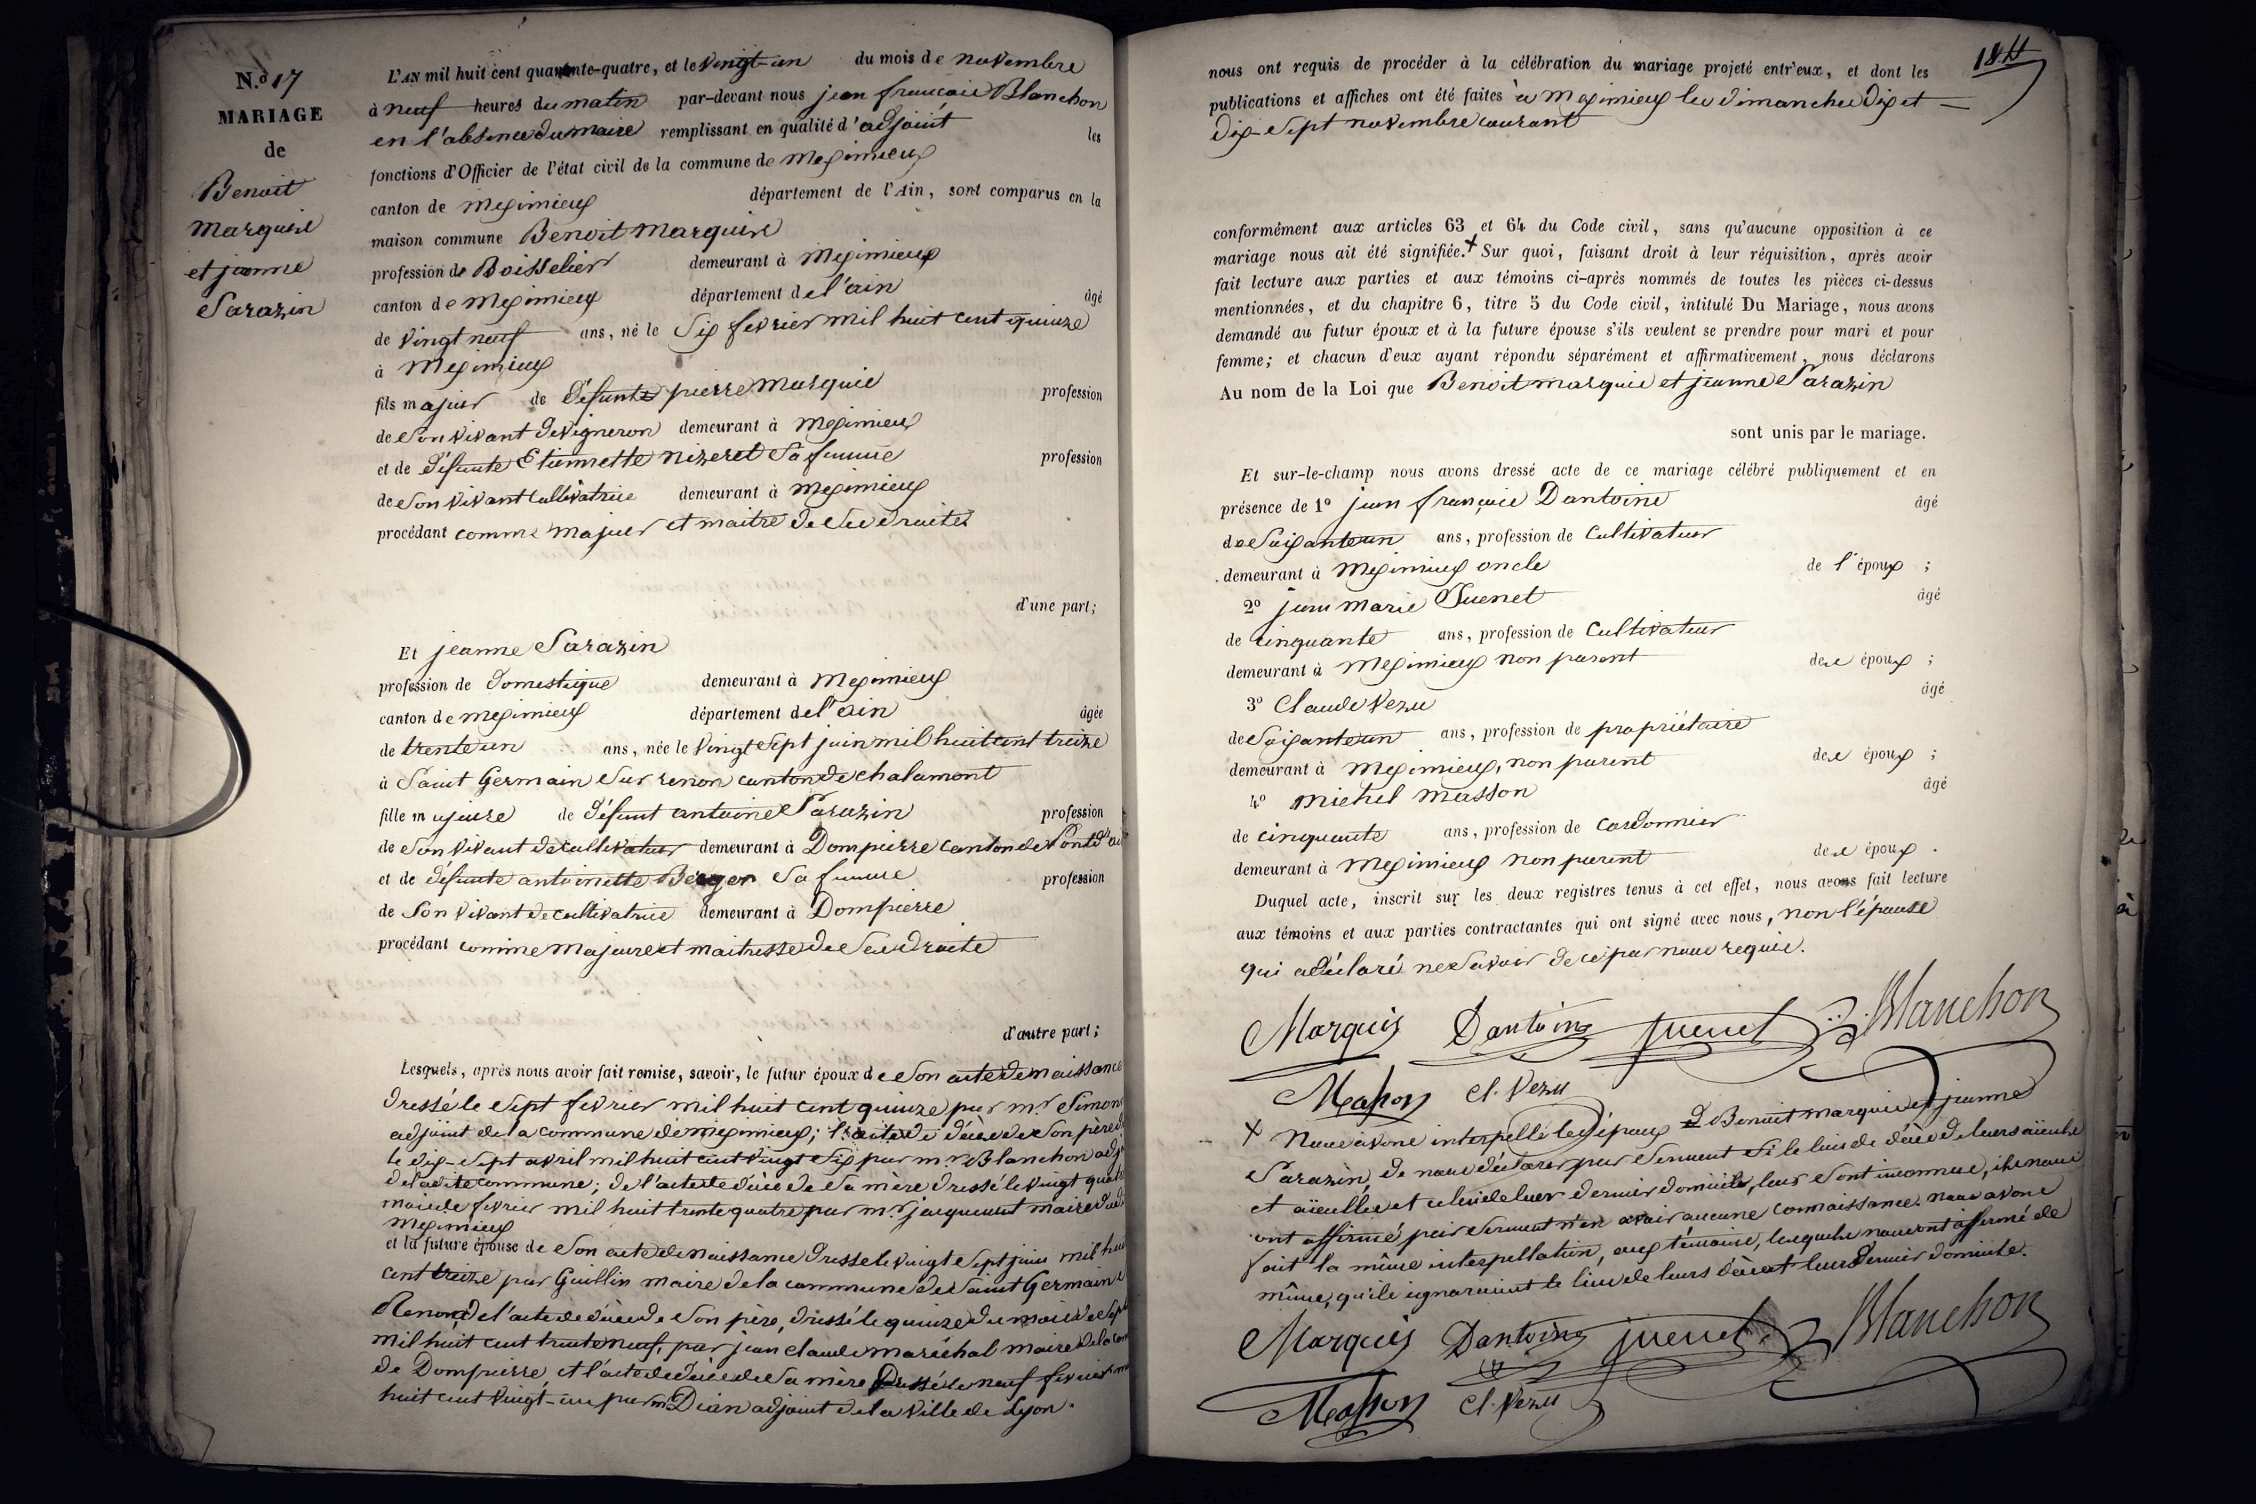 N.º 17
MARIAGE
de
Benoit
Marquis
et jeanne
Sarazin
L'AN mil huit cent quarante-quatre, et le vingt-un du mois de novembre
à neuf heures du matin par-devant nous jean francois Blanchon
en l'absence du maire remplissant en qualité d'adjoint les
fonctions d'Officier de l'état civil de la commune de meximieux
canton de meximieux département de l'Ain, sont comparus en la
maison commune Benoit Marquis
profession de Boisselier demeurant à Meximieux
canton de Meximieux département de l'ain âgé
de vingt neuf ans, né le six fevrier mil huit cent quinze
à Meximieux
fils majeur de défunts pierre Marquis profession
de son vivant de vigneron demeurant à Meximieux
et de défunte Etiennette nizeret sa femme profession
de son vivant cultivatrice demeurant à Meximieux
procédant comme majeur et maitre de ses droits
d'une part;
Et jeanne Sarazin
profession de domestique demeurant à Meximieux
canton de meximieux département de l'ain âgée
de trente un ans, née le vingt sept juin mil huit cent treize
à Saint Germain sur renon canton de chalamont
fille majeure de défunt antoine Sarazin profession
de son vivant de cultivateur demeurant à Dompierre canton de Pont d'ai
et de défunte antoinette Berger sa femme profession
de son vivant de cultivatrice demeurant à Dompierre
procédant comme majeure et maitresse de ses droits
d'autre part;
Lesquels, après nous avoir fait remise, savoir, le futur époux de son acte de naissance
dressé le sept fevrier mil huit cent quinze par m.r Simon
adjoint de la commune de meximieux; l'acte de décès de son père d
le dix-sept avril mil huit cent vingt six par m.r Blanchon adj
de ladite commune; de l'acte de décès de sa mère dressé le vingt quat
mois de fevrier mil huit trente quatre par m.r jacquemet maire
Meximieux
et la future épouse de son acte de naissance dressé le vingt sept juin mil hui
cent treize par Guillin maire de la commune de Saint Germain s
Renon, de l'acte de décès de son père, dressé le quinze du mois de sept
mil huit cent trente neuf, par jean claude maréchal maire de la com
de Dompierre, et l'acte de décès de sa mère Dressé le neuf fevrier m
huit cent vingt-un par m.r Dian adjoint de la ville de Lyon.
184
nous ont requis de procéder à la célébration du mariage projeté entr'eux, et dont les
publications et affiches ont été faites à Meximieux les dimanches dix et
dix-sept novembre courant
conformément aux articles 63 et 64 du Code civil, sans qu'aucune opposition à ce
mariage nous ait été signifiée.+ Sur quoi, faisant droit à leur réquisition, après avoir
fait lecture aux parties et aux témoins ci-après nommés de toutes les pièces ci-dessus
mentionnées, et du chapitre 6, titre 5 du Code civil, intitulé Du Mariage, nous avons
demandé au futur époux et à la future épouse s'ils veulent se prendre pour mari et pour
femme; et chacun d'eux ayant répondu séparément et affirmativement, nous déclarons
Au nom de la Loi que Benoit marquis et jeanne Sarazin
sont unis par le mariage.
Et sur-le-champ nous avons dressé acte de ce mariage célébré publiquement et en
présence de 1º jean françois Dantoine âgé
de soixante un ans, profession de Cultivateur
demeurant à Meximieux oncle de l'époux ;
2º jean marie Juenet âgé
de cinquante ans, profession de Cultivateur
demeurant à Meximieux non parent des époux ;
3º Claude Vezu âgé
de soixante un ans, profession de propriétaire
demeurant à Meximieux, non parent des époux ;
4º Michel Masson âgé
de cinquante ans, profession de cordonnier
demeurant à Meximieux non parent des époux .
Duquel acte, inscrit sur les deux registres tenus à cet effet, nous avons fait lecture
aux témoins et aux parties contractantes qui ont signé avec nous, non l'épouse
qui a déclaré ne savoir de ce par nous requis.
Marquis Dantoine juenet Blanchon
Masson Cl. Vezu
+ Nous avons interpellé les époux Benoit Marquis et jeanne
Sarazin, de nous déclarer par serment si le lieu de décès de leurs aïeuls
et aïeulles et celui de leur dernier domicile, leur sont inconnus, ils nous
ont affirmé par serment n'en avoir aucune connaissance. nous avons
fait la même interpellation, aux témoins, lesquels nous ont affirmé de
même, qu'ils ignoraient le lieu de leurs décès et leurs dernier domicile.
Marquis Dantoine juenet Blanchon
Masson Cl. Vezu